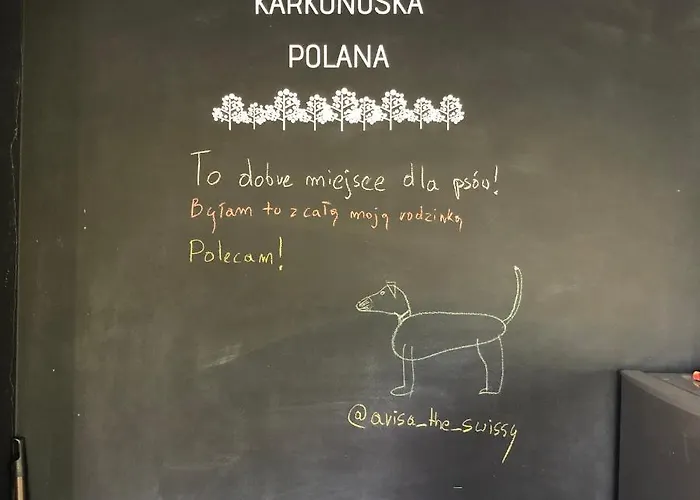 KARKONOSKA
POLANA
To dobre miejsce dla psów!
Byłam tu z całą moją rodzinką
Polecam!
@arisa_the_swissy